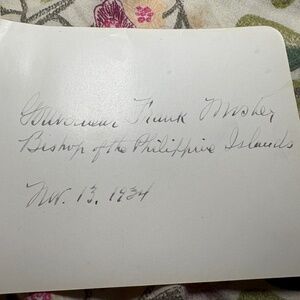 Gouverneur Frank Mosher
Bishop of the Philippine Islands
Nov. 13, 1934